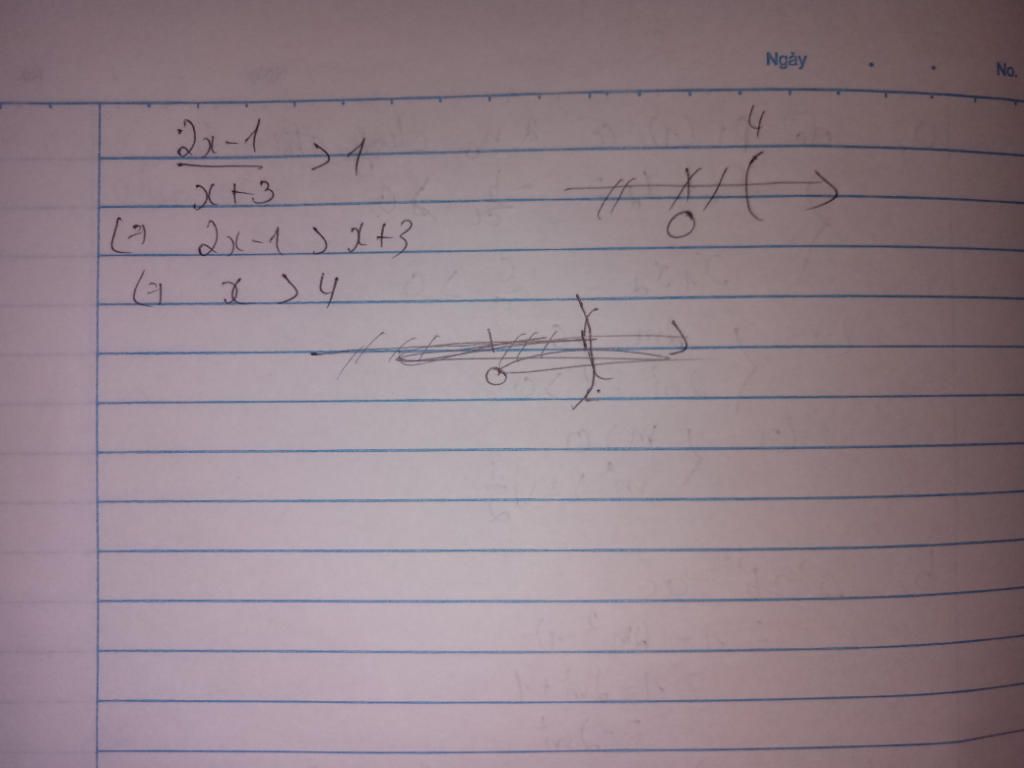 Ngày . . No.
2x-1
x+3 > 1
(=) 2x-1 > x+3
(=) x > 4
4
0
0